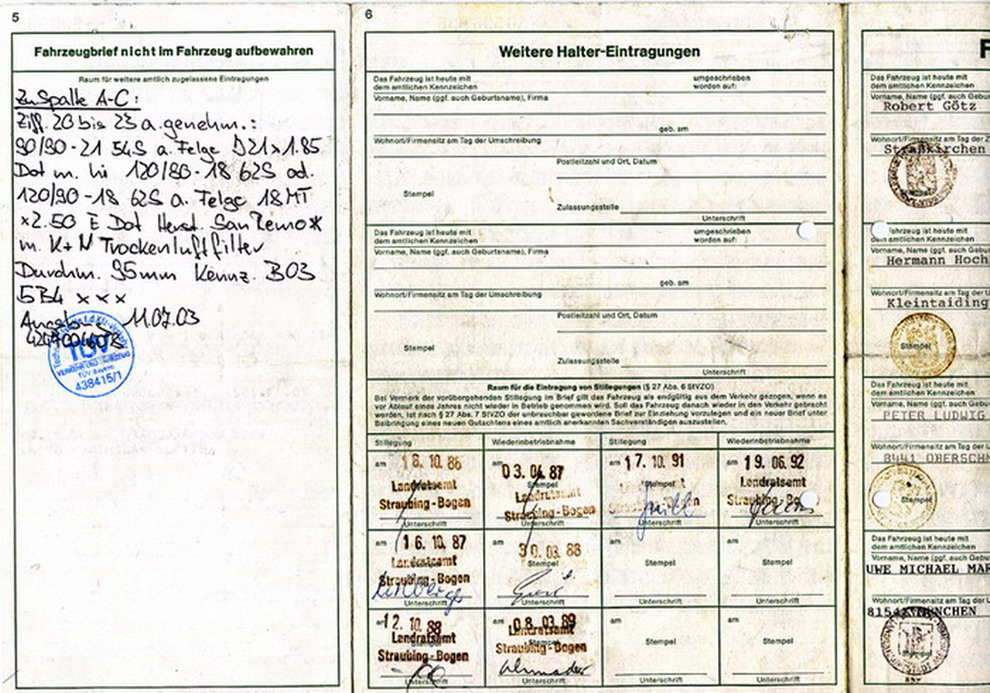 5
Fahrzeugbrief nicht im Fahrzeug aufbewahren
Raum für weitere amtlich zugelassene Eintragungen
Zu Spalte A-C:
Ziff. 20 bis 23 a. genehm.:
90/90-21 54S a. Felge D21x1.85
Dot m. hi 120/80-18 62S od.
120/90-18 62S a. Felge 18 MT
x2.50 E Dot Herst. San Remo*
m. K+N Trockenluftfilter
Durchm. 95mm Kennz. B03
5B4 x x x
11.02.03
TÜV
VERKEHR UND FAHRZEUG
438415/1
6
Weitere Halter-Eintragungen
Das Fahrzeug ist heute mit
dem amtlichen Kennzeichen
umgeschrieben
worden auf:
Vorname, Name (ggf. auch Geburtsname), Firma
geb. am
Wohnort/Firmensitz am Tag der Umschreibung
Postleitzahl und Ort, Datum
Stempel
Zulassungsstelle
Unterschrift
Das Fahrzeug ist heute mit
dem amtlichen Kennzeichen
umgeschrieben
worden auf:
Vorname, Name (ggf. auch Geburtsname), Firma
geb. am
Wohnort/Firmensitz am Tag der Umschreibung
Postleitzahl und Ort, Datum
Stempel
Zulassungsstelle
Unterschrift
Raum für die Eintragung von Stillegungen (§ 27 Abs. 6 StVZO)
Bei Vermerk der vorübergehenden Stillegung im Brief gilt das Fahrzeug als endgültig aus dem Verkehr gezogen, wenn es
vor Ablauf eines Jahres nicht wieder in Betrieb genommen wird. Soll das Fahrzeug danach wieder in den Verkehr gebracht
werden, ist nach § 27 Abs. 7 StVZO der unbrauchbar gewordene Brief zur Einziehung vorzulegen und ein neuer Brief unter
Beibringung eines neuen Gutachtens eines amtlich anerkannten Sachverständigen auszustellen.
Stillegung Wiederinbetriebnahme Stillegung Wiederinbetriebnahme
am 16.10.86 am 03.04.87 am 17.10.91 am 19.06.92
Landratsamt Landratsamt Landratsamt Landratsamt
Straubing-Bogen Straubing-Bogen Straubing-Bogen Straubing-Bogen
Unterschrift Unterschrift Unterschrift Unterschrift
am 16.10.87 am 30.03.88 am am
Landratsamt Stempel Stempel
Straubing-Bogen
Unterschrift Unterschrift Unterschrift Unterschrift
am 12.10.88 am 08.03.89 am am
Landratsamt Landratsamt Stempel Stempel
Straubing-Bogen Straubing-Bogen
Unterschrift Unterschrift Unterschrift
F
Das Fahrzeug ist heute mit
dem amtlichen Kennzeichen
Vorname, Name (ggf. auch
Robert Götz
Wohnort/Firmensitz am Tag der
Straßkirchen
Stempel
Fahrzeug ist heute mit
dem amtlichen Kennzeichen
Vorname, Name (ggf. auch
Hermann Hoch
Wohnort/Firmensitz am Tag der
Kleintaiding
Stempel
Das Fahrzeug ist heute mit
dem amtlichen Kennzeichen
Vorname, Name (ggf. auch
PETER LUDWIG
Wohnort/Firmensitz am Tag der
8441 OBERSCHN
Stempel
Das Fahrzeug ist heute mit
dem amtlichen Kennzeichen
Vorname, Name (ggf. auch
UWE MICHAEL MAR
Wohnort/Firmensitz am Tag der
MÜNCHEN